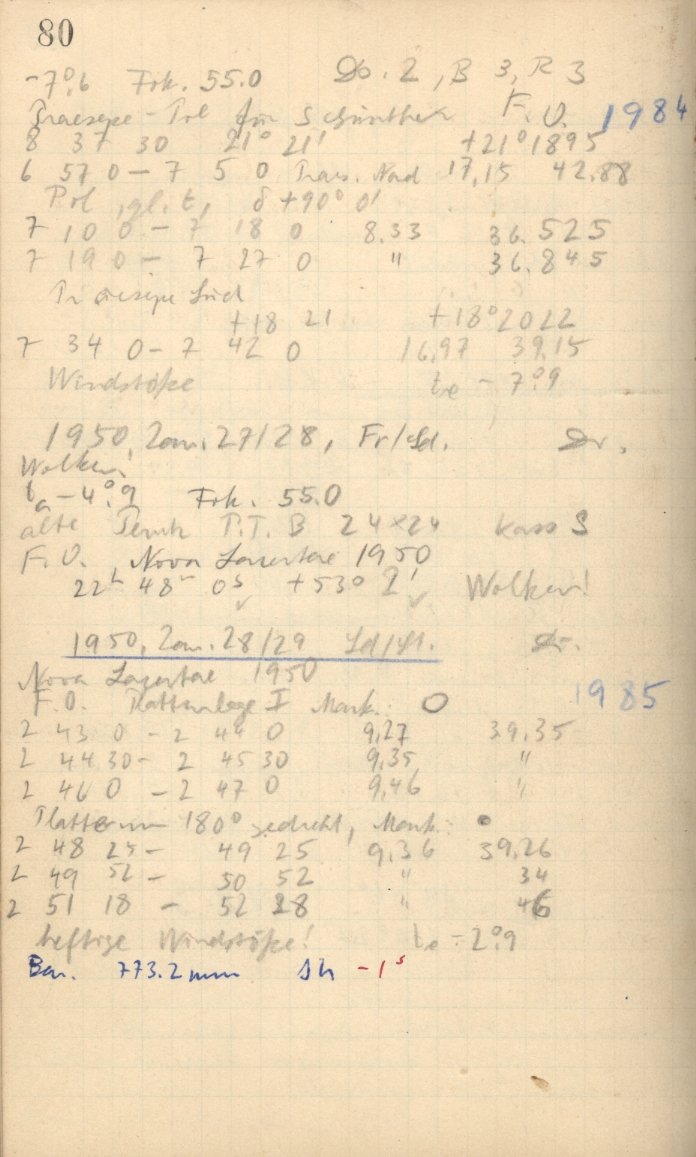 80
-7°.6 Fok. 55.0 2, B 3, R 3
Praesepe-Pol für Schürther F.O. 1984
8 37 30 21° 21' +21°1895
6 57 0 - 7 5 0 Praes. Nord 17,15 42.88
Pol, gl. t, δ +90° 0'
7 10 0 - 7 18 0 8.33 36.525
7 19 0 - 7 27 0 " 36.845
Praesepe Süd
+18 21 +18°2022
7 34 0 - 7 42 0 16,97 39,15
Windstöße te - 7°.9
1950, Jan. 27/28, Fr/Sd. Dr.
Wolken.
ta -4°.9 Fok. 55.0
alte P.T.B 24×24 Kass S
F.O., Nova Lacertae 1950
22h 48m 0s +53° 2' Wolken!
1950, Jan. 28/29 Sd/St. Dr.
Nova Lacertae 1950
F.O. Plattenlage I Mark. O 1985
2 43 0 - 2 44 0 9,27 39.35
2 44 30 - 2 45 30 9,35 "
2 46 0 - 2 47 0 9,46 "
Platte um 180° gedreht, Mark: •
2 48 25 - 49 25 9,36 39,26
2 49 52 - 50 52 " 34
2 51 18 - 52 28 " 46
heftige Windstöße! te -2°.9
Bar. 773.2 mm Sh -1s